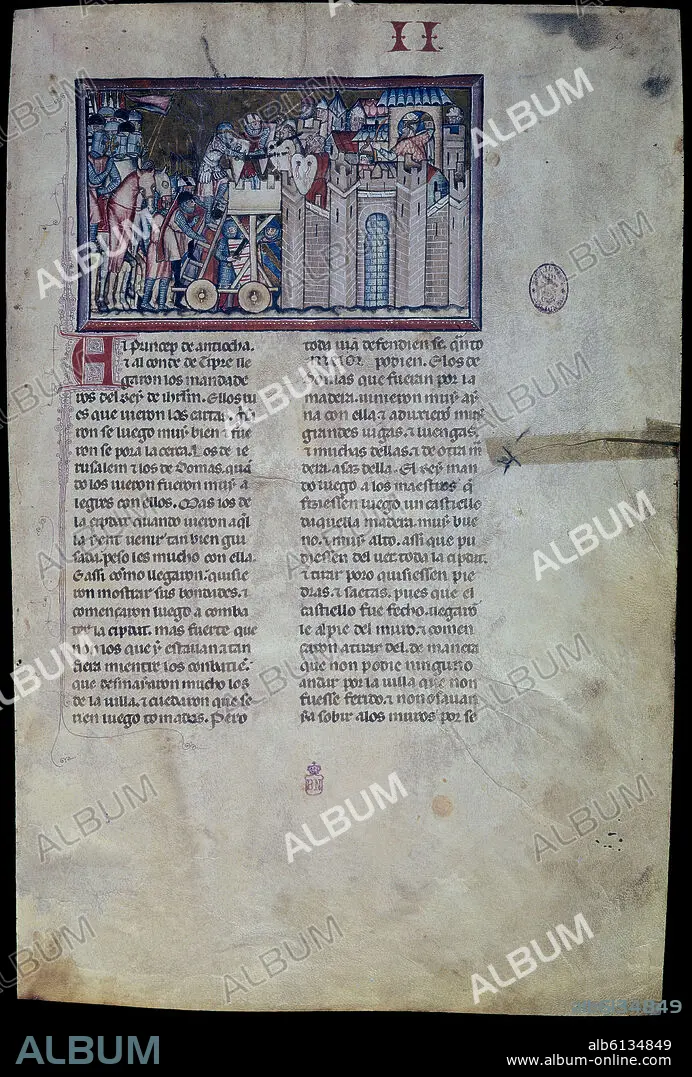 II
El Princep de antiocha.
⁊ al conde de Tipre lle
garon los mandade
ros del Rey de iħrlm. Ellos tu
es que uieron las cartas
ron se luego muy bien ⁊ fue
ron se pora la cerca. Los de ie
rusalem ⁊ los de Domas, quā
do los uieron fueron muy a
legres con ellos. Mas los de
la cipdat quando uieron aq̄l
la yent uenir tan bien gui
sada, peso les mucho con ella.
E assi cōmo llegaron, quisie
ron mostrar sus bondades, ⁊
començaron luego a comba
ter la cipdat, mas fuerte que
non los que y estauan a tan
fiera mientre los conbatiē,
que desmayaron mucho los
de la uilla, ⁊ cuedaron que se
rien luego tomados. Pero
toda uia defendien se q̄nto
meior podien. E los de
Domas que fueran por la
madera, uinieron muy ay
na con ella ⁊ aduxiero muy
grandes uigas, ⁊ luengas,
⁊ muchas dellas, ⁊ de otra m̄
dera assaz della. El Rey man
do luego a los maestros q̄
fiziessen luego un castiello
daquella madera muy bue
no, ⁊ muy alto, assi que pu
diessen del ueer toda la cipdat,
⁊ tirar poro quisiessen pie
dras, ⁊ saetas, pues que el
castiello fue fecho, llegarō
le al pie del muro, ⁊ comen
çaron a tirar del, de manera
que non podie ninguno
andar por la uilla que non
fuesse ferido, ⁊ non osauan
sa sobir a los muros por se
BN
ALBUM
alb6134849
www.album-online.com